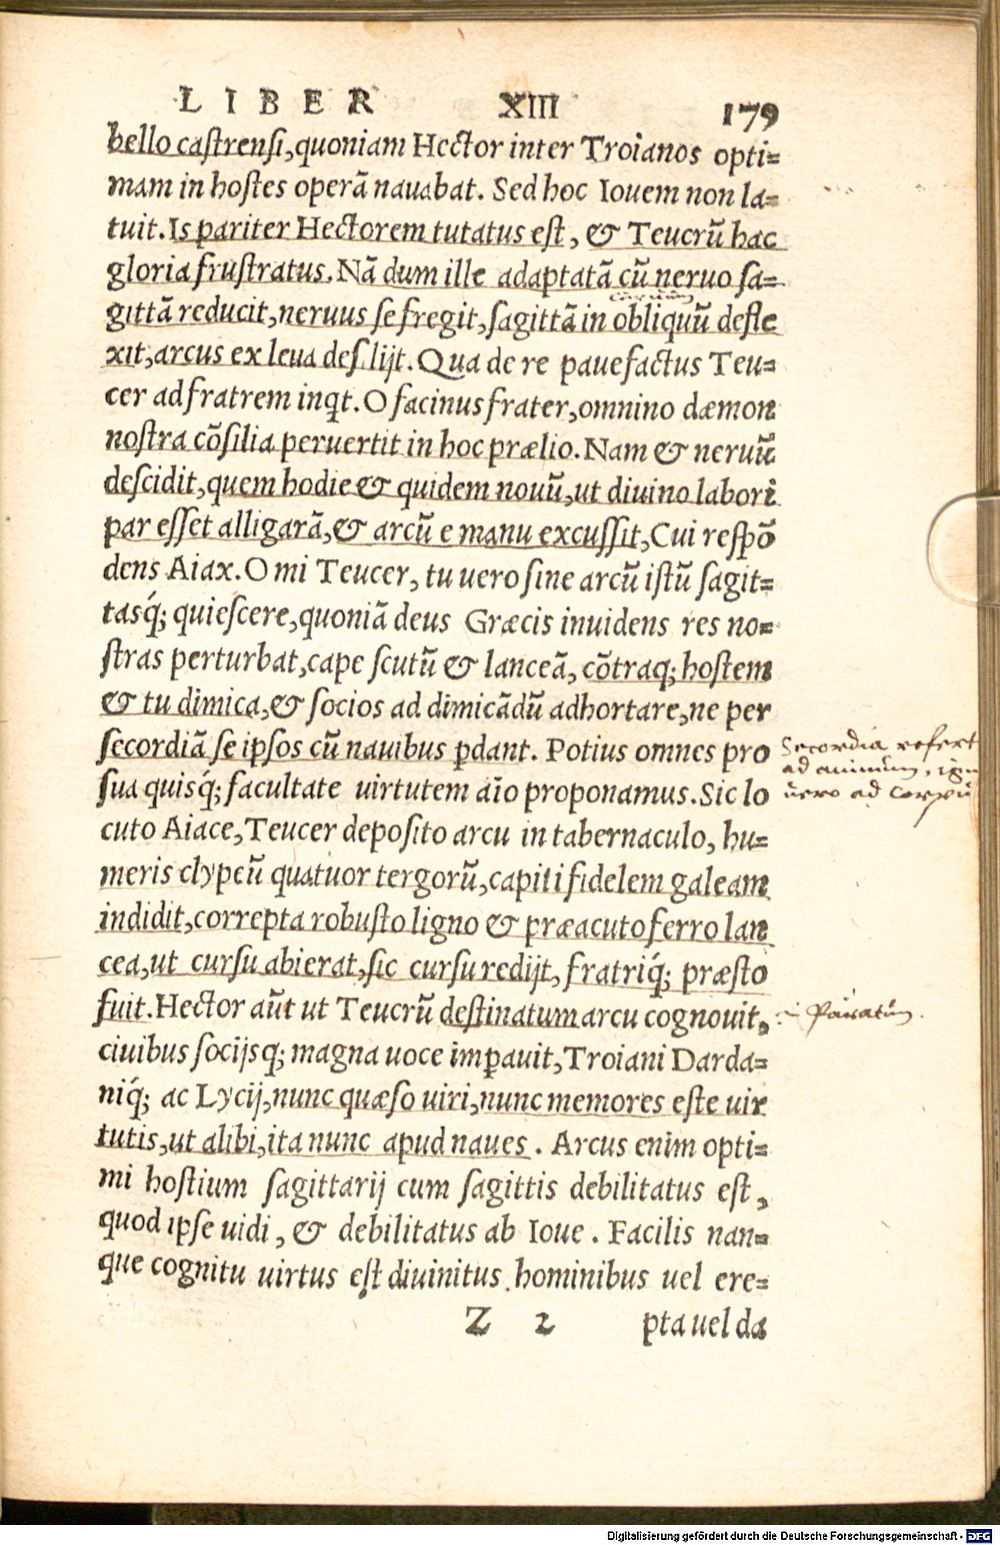 LIBER XIII 179
bello castrensi, quoniam Hector inter Troianos opti=
mam in hostes operã nauabat. Sed hoc Iouem non la=
tuit. Is pariter Hectorem tutatus est, & Teucrũ hac
gloria frustratus. Nã dum ille adaptatã cũ neruo sa=
gittã reducit, neruus se fregit, sagittã in obliquũ defle
xit, arcus ex leua desilijt. Qua de re pauefactus Teu=
cer ad fratrem inqt. O facinus frater, omnino dæmon
nostra cõsilia peruertit in hoc prælio. Nam & neruũ
descidit, quem hodie & quidem nouũ, ut diuino labori
par esset alligarã, & arcũ e manu excussit, Cui respõ
dens Aiax. O mi Teucer, tu uero sine arcũ istũ sagit=
tasq́; quiescere, quoniã deus Græcis inuidens res no=
stras perturbat, cape scutũ & lanceã, cõtraq; hostem
& tu dimica, & socios ad dimicãdũ adhortare, ne per
secordiã se ipsos cũ nauibus ꝑdant. Potius omnes pro
sua quisq́; facultate uirtutem aĩo proponamus. Sic lo
cuto Aiace, Teucer deposito arcu in tabernaculo, hu=
meris clypeũ quatuor tergorũ, capiti fidelem galeam
indidit, correpta robusto ligno & præacuto ferro lan
cea, ut cursu abierat, sic cursu redijt, fratriq́; præsto
fuit. Hector aũt ut Teucrũ destinatum arcu cognouit,
ciuibus socijsq; magna uoce imꝑauit, Troiani Darda=
niq́; ac Lycij, nunc quæso uiri, nunc memores este uir
tutis, ut alibi, ita nunc apud naues. Arcus enim opti=
mi hostium sagittarij cum sagittis debilitatus est,
quod ipse uidi, & debilitatus ab Ioue. Facilis nan=
que cognitu uirtus est diuinitus hominibus uel ere=
Z 2 pta uel da
Secordia refert
ad animum,
uero ad corpũ
Paratũm.
Digitalisierung gefördert durch die Deutsche Forschungsgemeinschaft - DFG